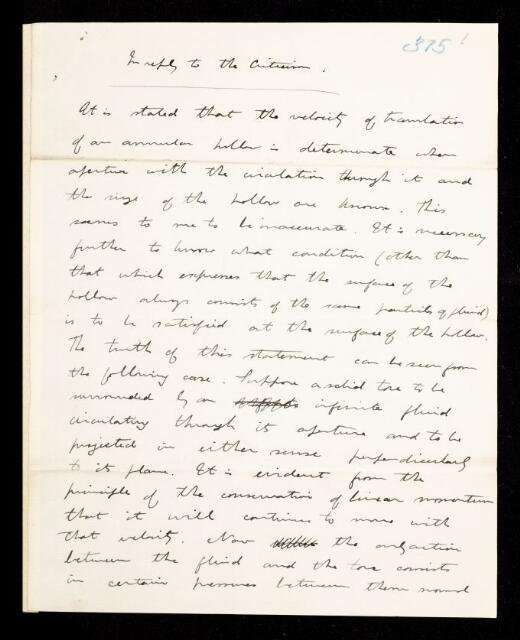 375
In reply to the Criticism.
It is stated that the velocity of translation
of an annular hollow is determinate when
aperture with the circulation through it and
the size of the hollow are known. This
seems to me to be inaccurate. It is necessary
further to know what condition (other than
that which expresses that the surface of the
hollow always consists of the same particles of fluid)
is to be satisfied at the surface of the hollow.
The truth of this statement can be seen from
the following case. Suppose a solid tore to be
surrounded by an infinite fluid
circulating through its aperture and to be
projected in either sense perpendicularly
to its plane. It is evident from the
principle of the conservation of linear momentum
that it will continue to move with
that velocity. Now the only action
between the fluid and the tore consists
in certain pressures between them normal